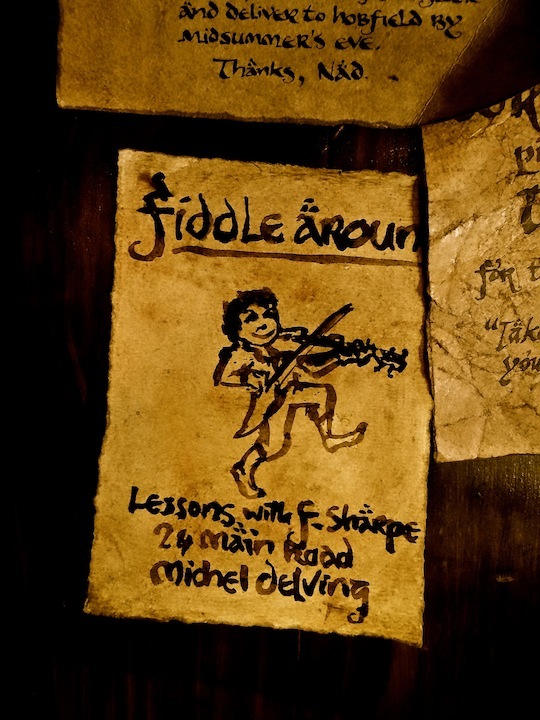 and deliver to hobfield by
midsummer's eve.
Thänks, Näd.
fiddle äroun
Lessons with f. Shärpe
24 Mäin Road
Michel delving
för
"Täke
you